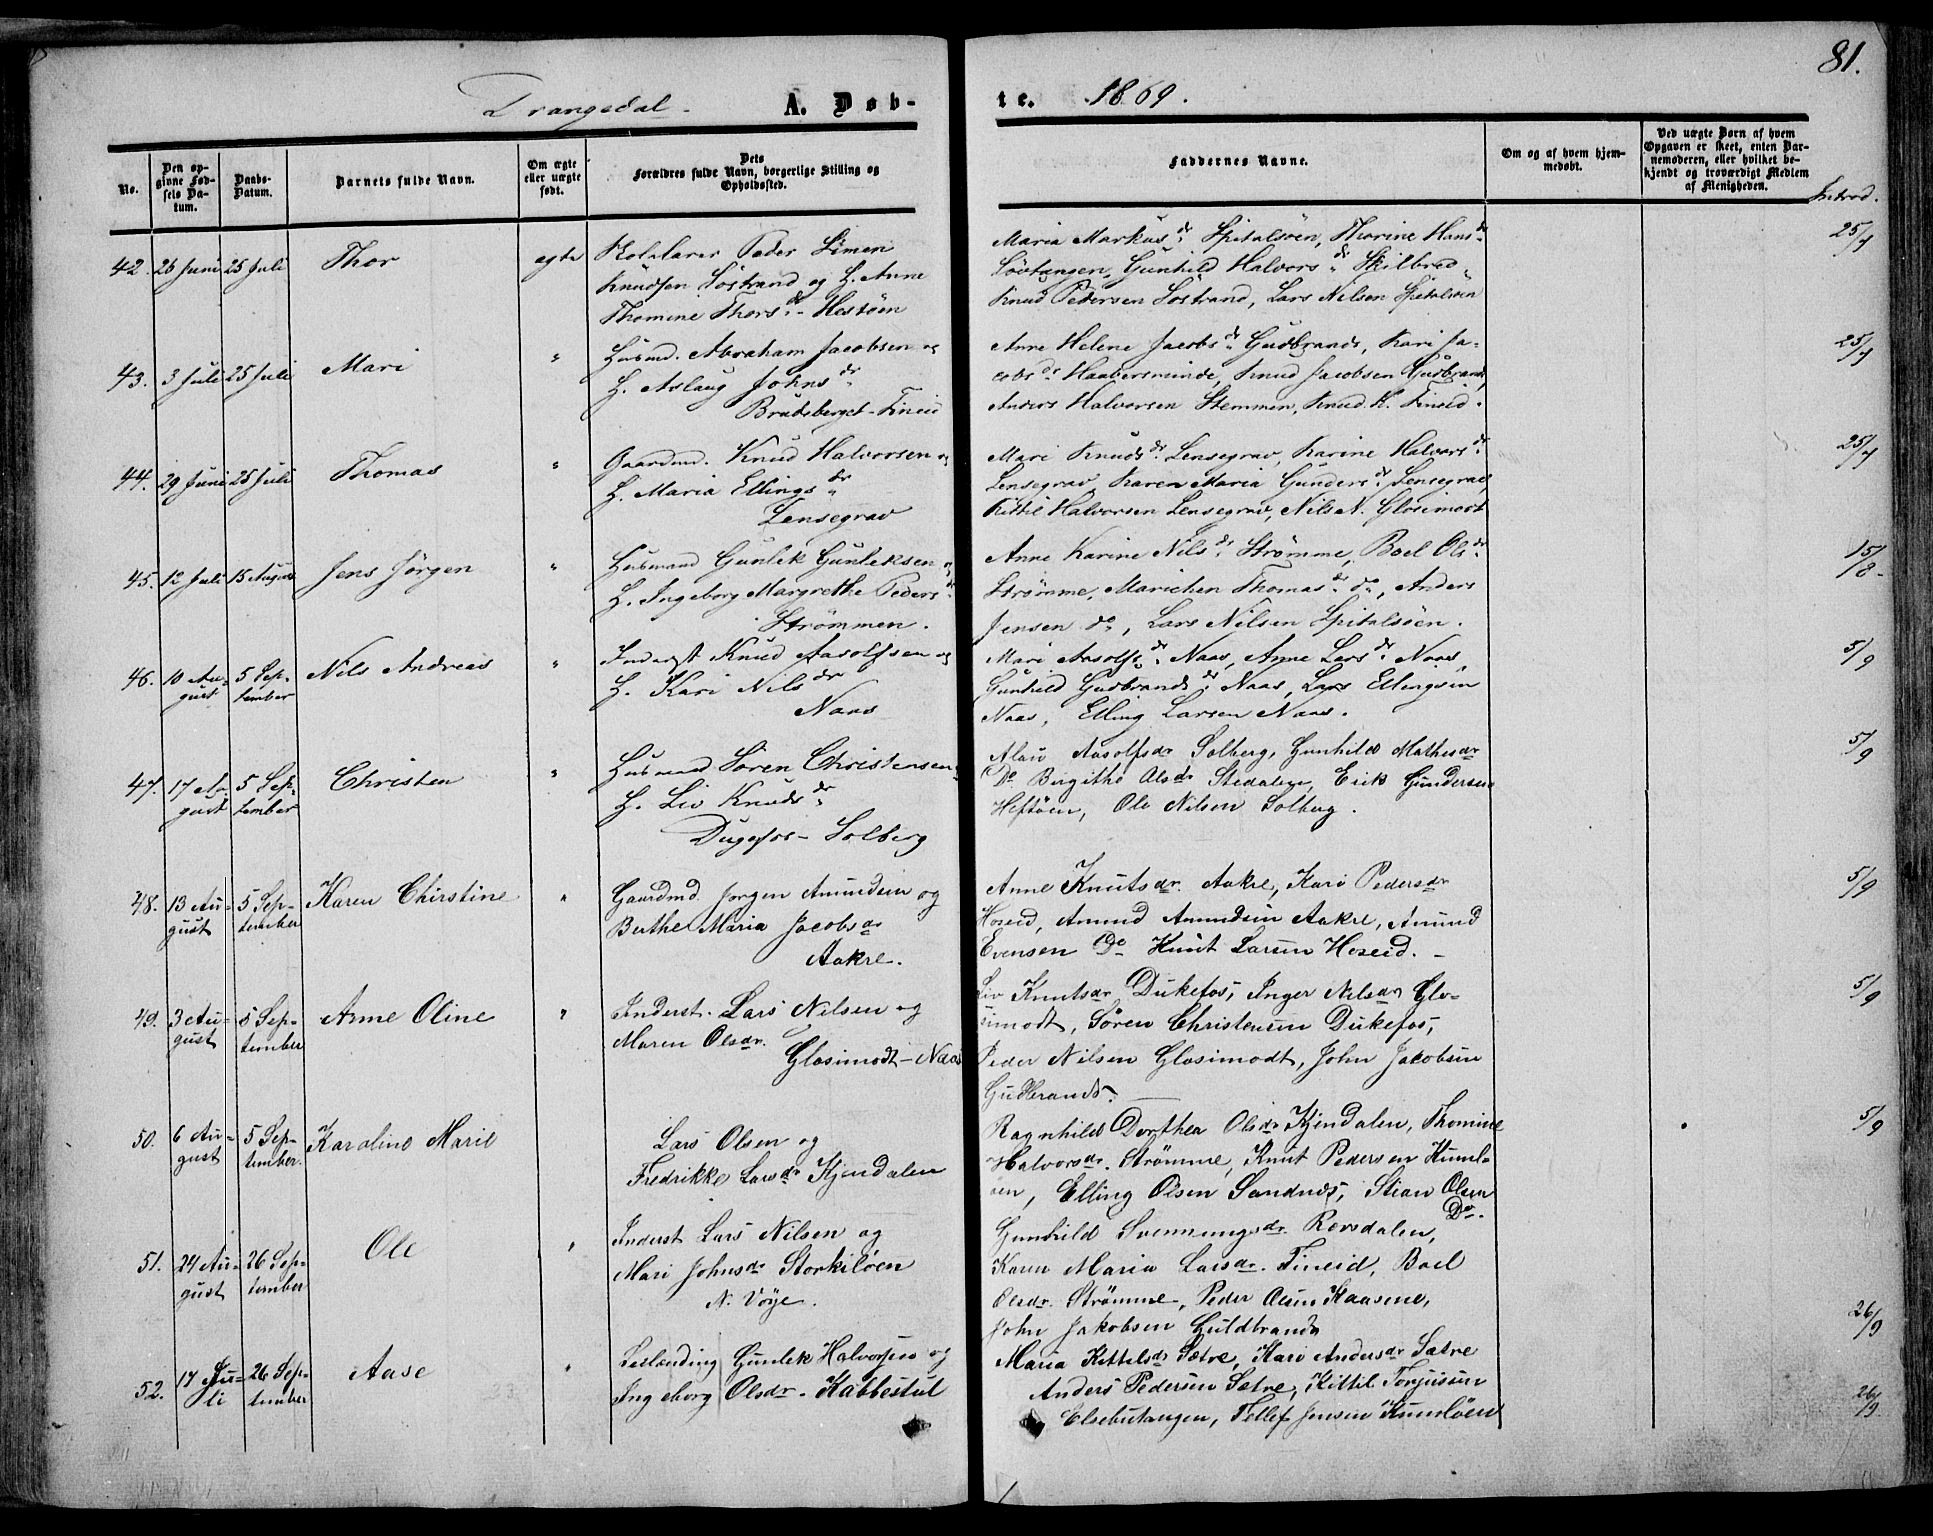 81.
Drangedal - A. Døb-
te. 1869.
No.
Den op-
givne Fød-
sels Da-
tum.
Daabs-
Datum.
Barnets fulde Navn.
Om ægte
eller uægte
født.
Dets
Forældres fulde Navn, borgerlige Stilling og
Opholdssted.
Faddernes Navne.
Om og af hvem hjem-
medøbt.
Ved uægte Børn af hvem
Opgaven er skeet, enten Bar-
nemoderen, eller hvilket be-
kjendt og troværdigt Medlem
af Menigheden.
Introd.
42. 26 Juni 25 Juli Thor ægte
Peder Simen
Knudsen Söstrand og H. Anne
Thomine Thorsdr. - Hestöen
Maria Markusdr. Spitalsöen, Thorine Hansdr.
Lövtangen, Gunhild Halvorsdr. Skilbred
Knud Pedersen Söstrand, Lars Nilsen Spitalsöen
25/7
43. 3 Juli 25 Juli Mari "
Husmd. Abraham Jacobsen og
H. Aslaug Johnsdr.
Brudsberget - Fineid
Anne Helene Jacobsdr. Gudbrands, Kari Ja-
cobsdr. Haabersminde, Knud Jacobsen Gudbrands,
Anders Halvorsen Stemmen, Knud H. Fineid.
25/7
44. 29 Juni 25 Juli Thomas "
Gaardmd. Knud Halvorsen og
H. Maria Ellingsdr.
Lensegrav
Mari Knudsdr. Lensegrav, Karine Halvorsdr.
Lensegrav, Karen Maria Gundersdr. Lensegrav,
Kittil Halvorsen Lensegrav, Nils N. Glosimodt
25/7
45. 12 Juli 15 August Jens Jörgen "
Husmand Gunlek Gunleksen og
H. Ingeborg Margrethe Pedersdr.
Strömmen.
Anne Karine Nilsdr. Strömme, Boel Olsdr.
Strömme, Marichen Thomasdr. do, Anders
Jensen do, Lars Nilsen Spitalsöen.
15/8
46. 10 Au-
gust 5 Sep-
tember Nils Andreas "
Inderst Knud Aasolfsen og
H. Kari Nilsdr
Naas
Mari Aasolfsdr. Naas, Anne Larsdr. Naas,
Gunhild Gudbrandsdr. Naas, Lars Ellingsen
Naas, Elling Larsen Naas.
5/9
47. 17 Au-
gust 5 Sep-
tember Christen "
Husmand Sören Christensen og
H. Liv Knudsdr.
Dugefos - Solberg
Aasolfsdr Solberg, Gunhild Mathisdr
Do Birgithe Olsdr Stedalen, Erik Gundersen
Heftöen, Ole Nilsen Solberg.
5/9
48. 13 Au-
gust 5 Sep-
tember Karen Chirstine "
Gaardmd. Jorgen Amundsen og
Berthe Maria Jacobsdr
Aakre.
Anne Knutsdr. Aakre, Kari Pedersdr
Hoseid, Amund Amundsen Aakre, Amund
Evensen Do Knut Larsen Hoseid. -
5/9
49. 3 Au-
gust 5 Sep-
tember Anne Oline "
Inderst. Lars Nilsen og
Maren Olsdr.
Glosimodt - Naas
Liv Knutsdr Dukefos, Inger Nilsdr Glo-
simodt, Sören Christensen Dukefos,
Peder Nilsen Glosimodt, John Jacobsen
Gudbrands.
5/9
50. 6 Au-
gust 5 Sep-
tember. Karoline Marie
Lars Olsen og
Fredrikke Larsdr Kjendalen
Ragnhild Dorthea Olsdr Kjendalen, Thomine
Halvorsdr. Strömme, Knut Pedersen Huml-
öen, Elling Olsen Sandnes, Stian Olsen
Do.
5/9
51. 24 Au-
gust 26 Sep-
tember Ole "
Inderst Lars Nilsen og
Mari Johnsdr Storkilöen
N. Vöje.
Gunhild Svenningsdr. Rörsdalen,
Karen Maria Larsdr. Fineid, Boel
Olsdr. Strömme, Peder Olsen Kaasene,
John Jakobsen Guldbrands
26/9
52. 17 Ju-
li 26 Sep-
tember Aase "
Gunlek Halvorsen og
Ingeborg Olsdr. Kabbestul
Maria Kittelsdr Sætre, Kari Andersdr Sætre
Anders Pedersen Sætre, Kittil Torjussen
Elsebutangen, Tellef Jensen Humlöen
26/9.